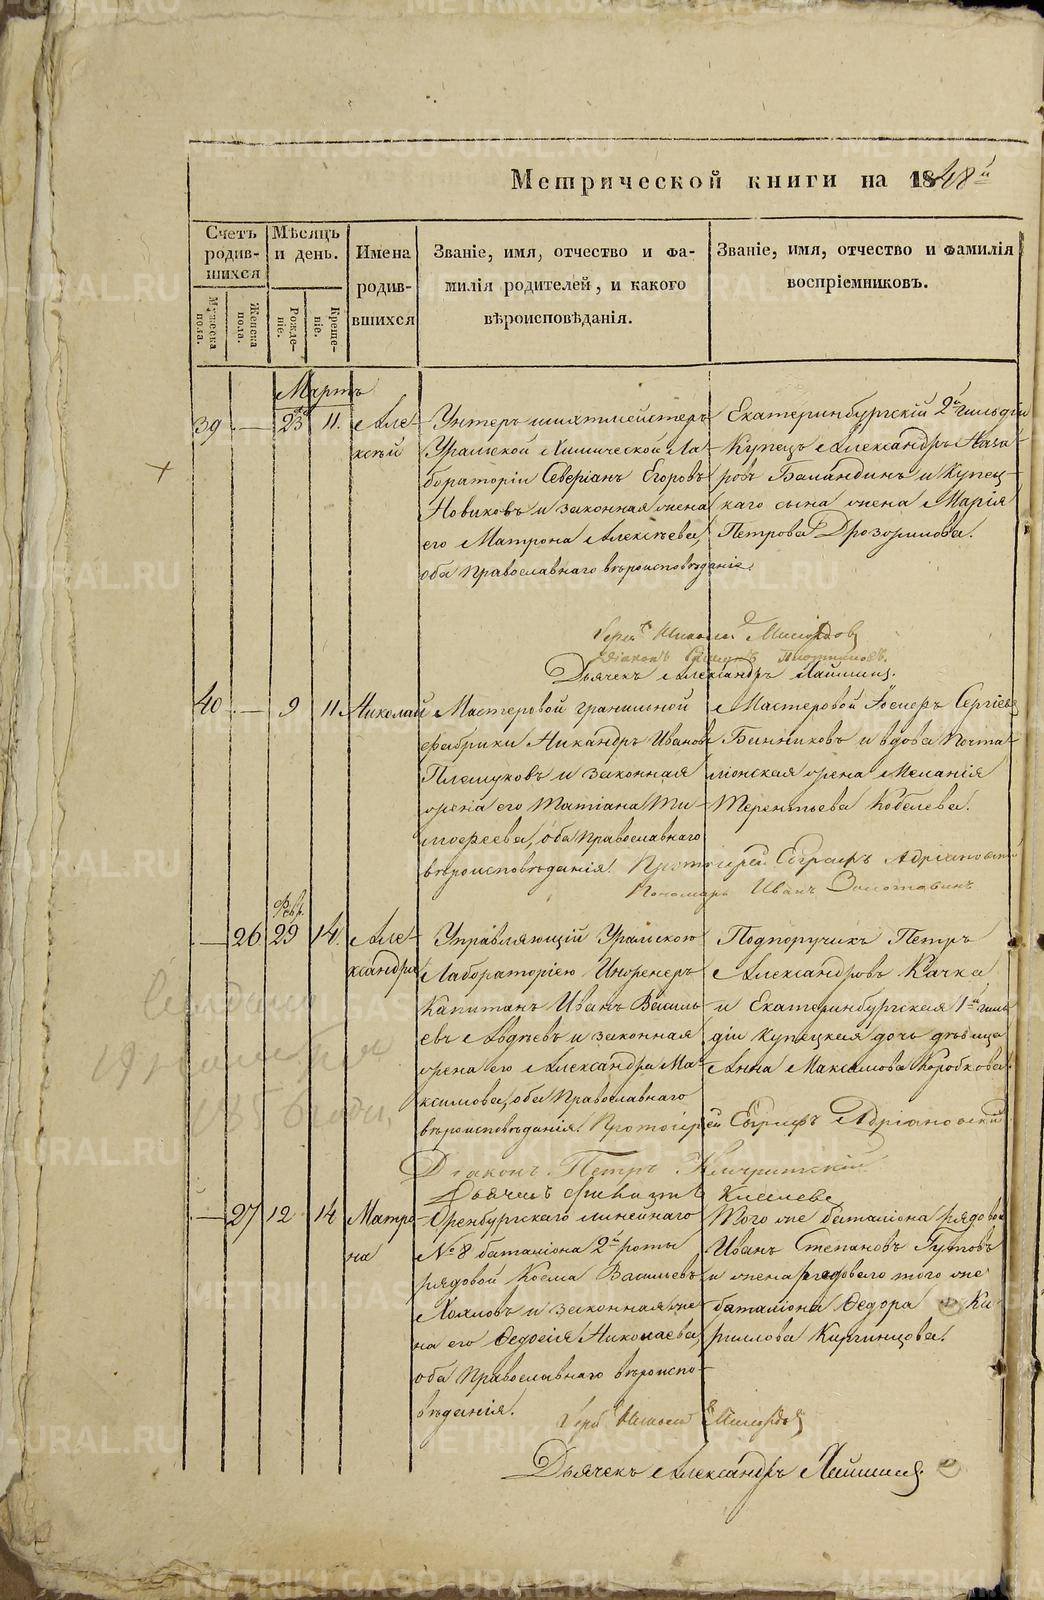 Метрической книги на 1848й
Счетъ родив-шихся
Мѣсяцъ и день.
Имена родив-вшихся
Званіе, имя, отчество и фа-
милія родителей, и какого
вѣроисповѣданія.
Званіе, имя, отчество и фамилія
воспріемниковъ.
Мужеска пола.
Женска пола.
Рожде-ніе.
Креще-ніе.
Мартъ
39 — 11. Але-ксѣй
Унтеръ-шихтмейстеръ
Уральской Химической Ла-
бораторіи Северіанъ Егоровъ
Новиковъ и законная жена
его Матрона Алексѣева,
оба Православнаго вѣроисповѣданія.
Екатеринбургскій 2й гильдіи
Купецъ Александръ Наза-
ровъ Баландинъ и Купец-
каго сына жена Марія
Петрова Дрозжилова.
Діаконъ
Дьячекъ Александръ
40 — 9 11. Николай
Мастеровой гранильной
фабрики Никандръ Ивановъ
Плешуковъ и законная
жена его Татіана Ти-
моѳеева, оба Православнаго
вѣроисповѣданія.
Мастеровой Іосифъ Сергѣевъ
Бинниковъ и вдова Почта-
ліонская жена Меланія
Терентьева Кобелева.
Протоіерей Евграфъ
Пономарь Иванъ Золотавинъ
Февр.
— 26 29 14. Але-ксандра
Управляющій Уральскою
Лабораторіею Инженеръ
Капитанъ Иванъ Василь-
евъ Авдѣевъ и законная
жена его Александра Ма-
ксимова, оба Православнаго
вѣроисповѣданія.
Подпоручикъ Петръ
Александровъ Качка
и Екатеринбургская 1й гиль-
діи купецкая дочь дѣвица
Анна Максимова Коробкова.
Протоіерей Евграфъ
Діаконъ Петръ
Дьячекъ Киселевъ
— 27 12 14 Матро-на
Оренбургскаго линейнаго
№ 8 баталіона 2й роты
рядовой Козма Васильевъ
Хохловъ и законная же-
на его Ѳедосія Николаева,
оба Православнаго вѣроиспо-
вѣданія.
Того же баталіона рядовой
Иванъ Степановъ Гутовъ
и жена рядоваго того же
баталіона Ѳедора Ки-
рилова Киргинцова.
Дьячекъ Александръ
METRIKI.GASO-URAL.RU